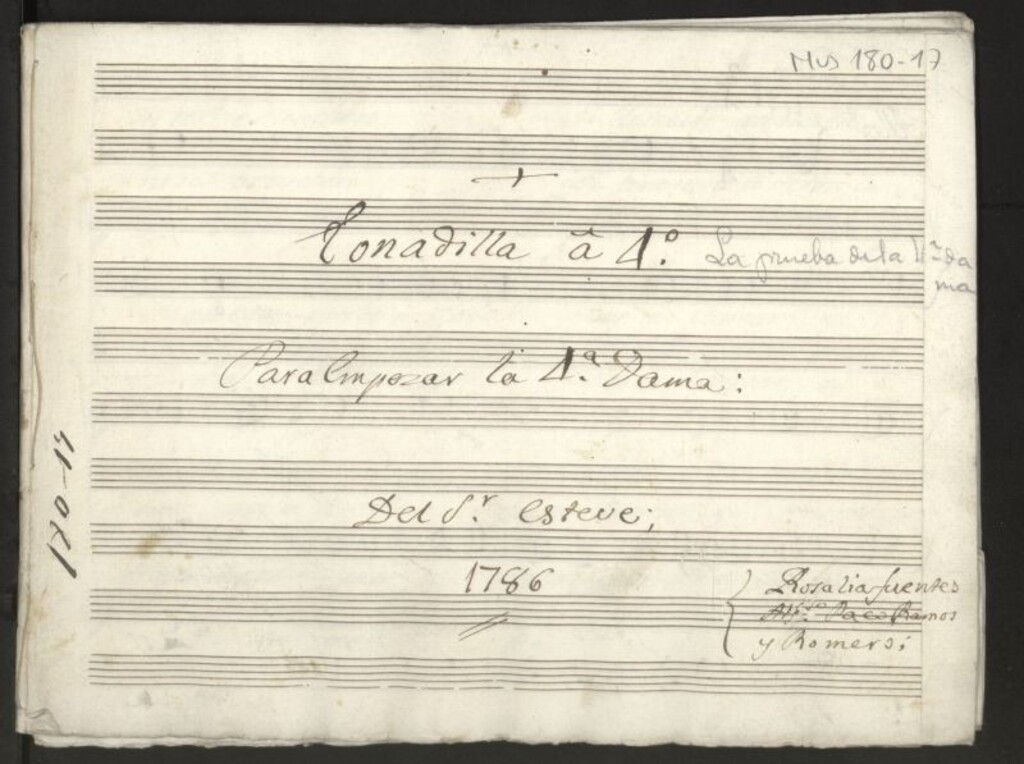 Mus 180-17
+
Tonadilla â 4.º La prueba de la 4.ª da
ma
Para Empezar la 4.ª Dama:
Del S.r Esteve;
1786
Rosalia fuentes
Paco Ramos
y Romero;